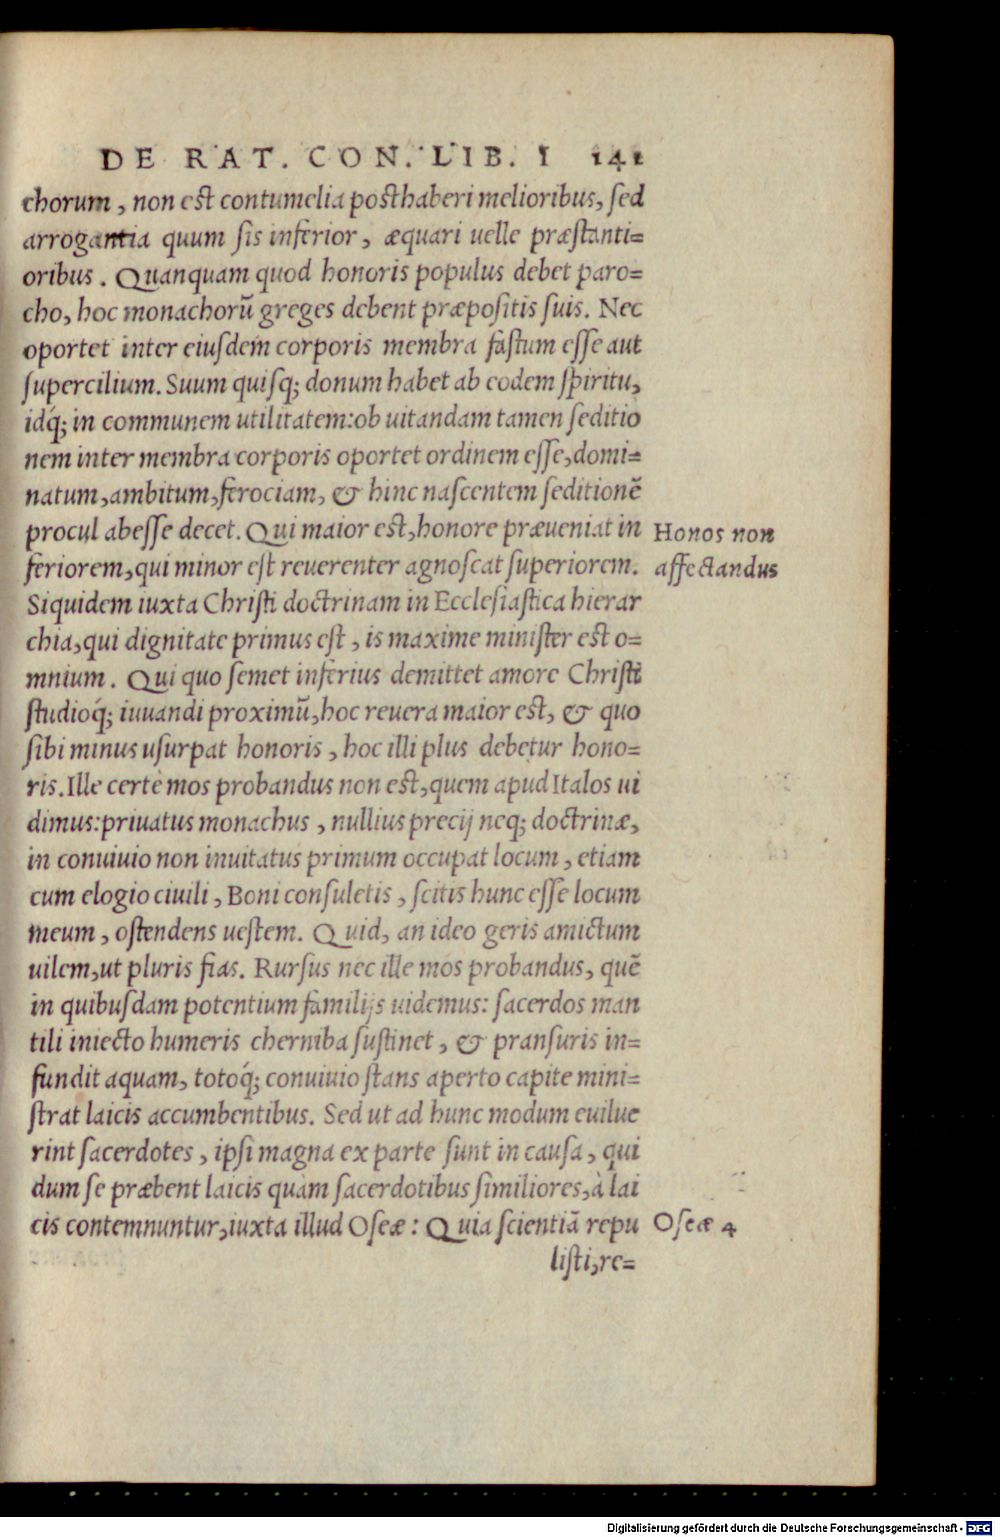 DE RAT. CON. LIB. I 141
chorum, non est contumelia posthaberi melioribus, sed
arrogantia quum sis inferior, æquari uelle præstanti=
oribus. Quanquam quod honoris populus debet paro=
cho, hoc monachorũ greges debent præpositis suis. Nec
oportet inter eiusdem corporis membra fastum esse aut
supercilium. Suum quisq; donum habet ab eodem spiritu,
idq́; in communem utilitatem: ob uitandam tamen seditio
nem inter membra corporis oportet ordinem esse, domi=
natum, ambitum, ferociam, & hinc nascentem seditionẽ
procul abesse decet. Qui maior est, honore præueniat in
Honos non
feriorem, qui minor est reuerenter agnoscat superiorem.
affectandus
Siquidem iuxta Christi doctrinam in Ecclesiastica hierar
chia, qui dignitate primus est, is maxime minister est o=
mnium. Qui quo semet inferius demittet amore Christi
studioq́; iuuandi proximũ, hoc reuera maior est, & quo
sibi minus usurpat honoris, hoc illi plus debetur hono=
ris. Ille certè mos probandus non est, quem apud Italos ui
dimus: priuatus monachus, nullius precij neq; doctrinæ,
in conuiuio non inuitatus primum occupat locum, etiam
cum elogio ciuili, Boni consuletis, scitis hunc esse locum
meum, ostendens uestem. Quid, an ideo geris amictum
uilem, ut pluris fias. Rursus nec ille mos probandus, quẽ
in quibusdam potentium familijs uidemus: sacerdos man
tili iniecto humeris cherniba sustinet, & pransuris in=
fundit aquam, totoq́; conuiuio stans aperto capite mini=
strat laicis accumbentibus. Sed ut ad hunc modum euilue
rint sacerdotes, ipsi magna ex parte sunt in causa, qui
dum se præbent laicis quàm sacerdotibus similiores, à lai
cis contemnuntur, iuxta illud Oseæ: Quia scientiã repu
Oseæ 4
listi, re=
Digitalisierung gefördert durch die Deutsche Forschungsgemeinschaft - DFG